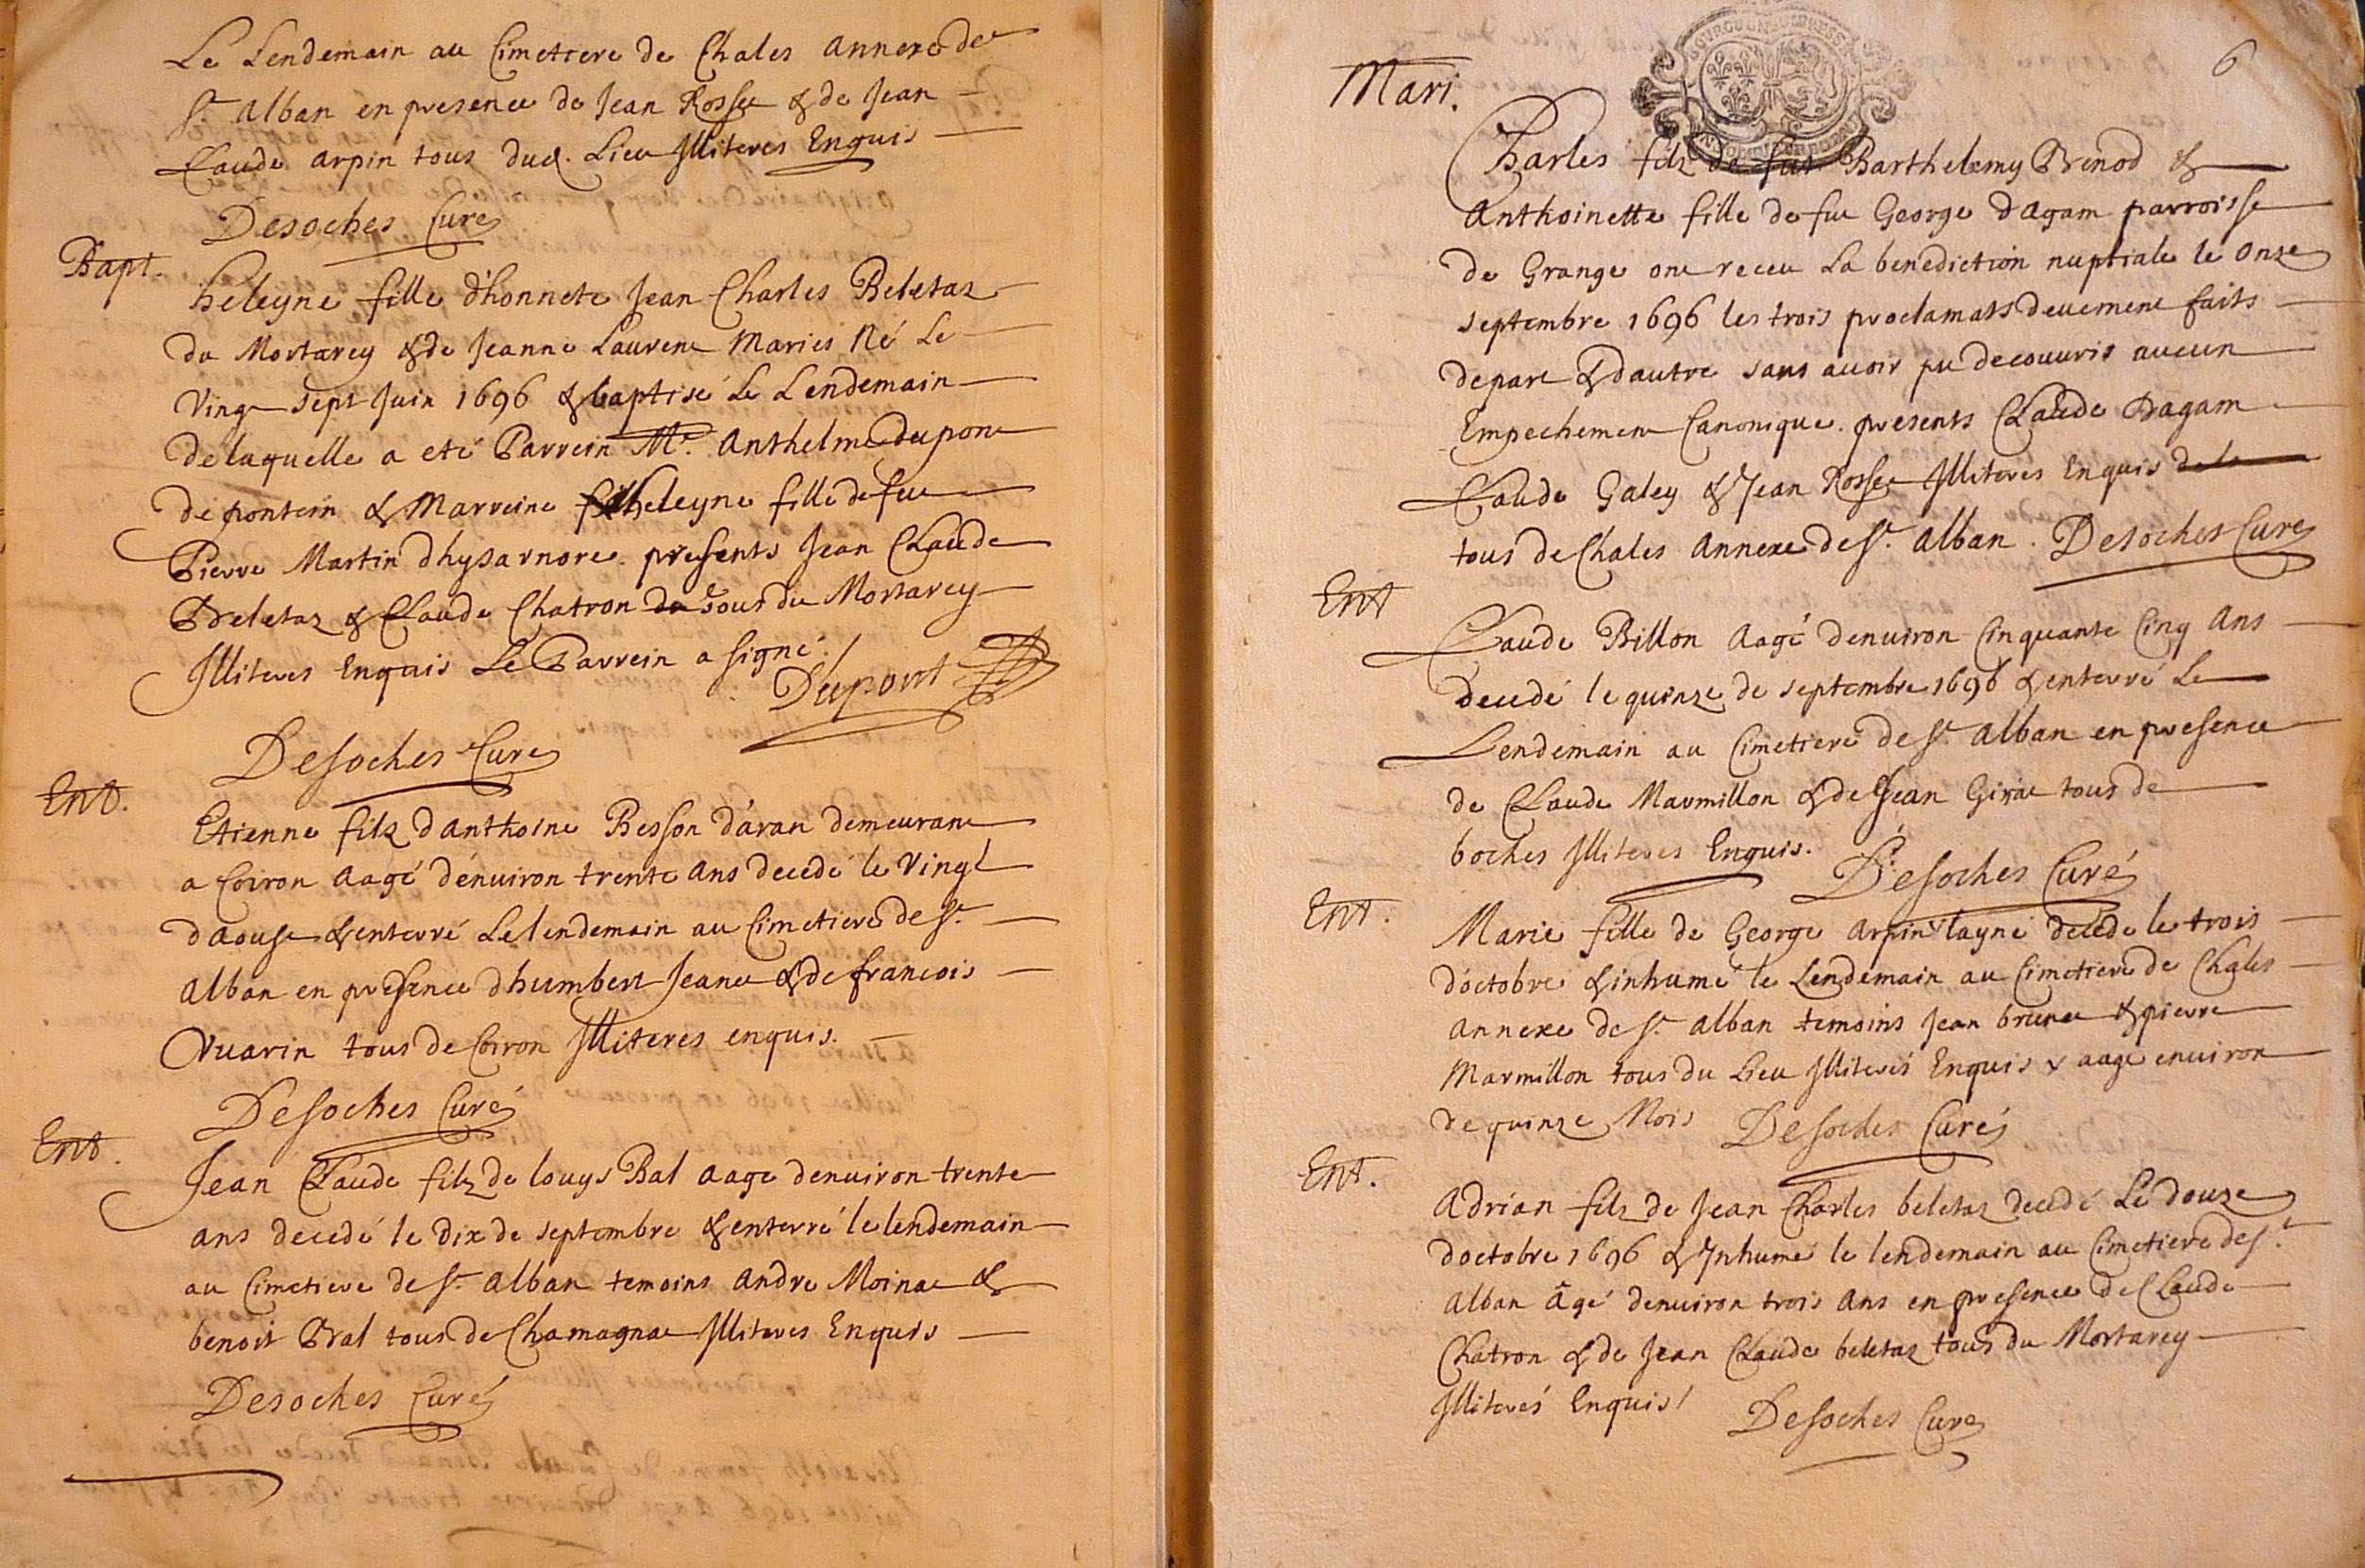 Le Lendemain au Cimettere de Chales annexe de
St. alban en presence de Jean Rosset & de Jean
Claude arpin tous dud. Lieu Jlliteres Enquis
Desoches Curé
Bapt.
heleyne fille d'honnete Jean Charles Beletaz
du Mortarey & de Jeanne Laurent Mariés Né Le
Vingt sept Juin 1696 & baptisé Le Lendemain
de laquelle a eté Parrein Mr. Anthelme dupont
de pontein & Marreine heleyne fille de feu
Pierre Martin dhysarnore. presents Jean Claude
Beletaz & Claude Chatron de tous du Mortarey
Jlliteres Enquis Le Parrein a signé.
Dupont
Desoches Curé
Ent.
Etienne filz danthoine Besson d'aran demeurant
a Coiron aagé d'enuiron trente ans decedé le Vingt
daoust & enterré Le lendemain au Cimetiere de St.
alban en presence dhumbert Jeanet & de francois
Vuarin tous de Coiron Jlliteres enquis.
Desoches Curé
Ent.
Jean Claude filz de louys Bal aagé denuiron trente
ans decedé le dix de septembre & enterré le lendemain
au Cimetiere de St. alban temoins andre Moinat &
benoit Bal tous de Chamagnat Jlliteres Enquis
Desoches Curé
6
Mari.
BOURGOGNE BRESSE
Charles filz de fut Barthelemy Brenod &
Anthoinette fille de fut George dagam parroisse
de Grange ont receu La benediction nuptiale le onze
septembre 1696 les trois proclamats deuement faits
de part & dautre sans auoir pu decouurir aucun
Empechement Canonique. presents Claude Dagam
Claude Galey & Jean Rosset Jlliteres Enquis de la
tous de Chales annexe de St. alban. Desoches Curé
Ent
Claude Billon aagé denuiron Cinquante Cinq ans
décedé le quinze de septembre 1696 & enterré Le
Lendemain au Cimetiere de St. alban en presence
de Claude Marmillon & de Jean Girat tous de
boches Jlliteres Enquis.
Desoches Curé
Ent.
Marie fille de George arpin layné décede le trois
d'octobre & inhumé le Lendemain au Cimetiere de Chales
annexe de St. alban temoins Jean brunet & pierre
Marmillon tous du Lieu Jlliterés Enquis & aagé enuiron
de quinze Mois Desoches Curé
Ent.
Adrian filz de Jean Charles beletaz decedé Le douze
d'octobre 1696 & Jnhumé le lendemain au Cimetiere de St.
alban âgé denuiron trois ans en presence de Claude
Chatron & de Jean Claude beletaz tous du Mortarey
Jlliterés Enquis
Desoches Curé